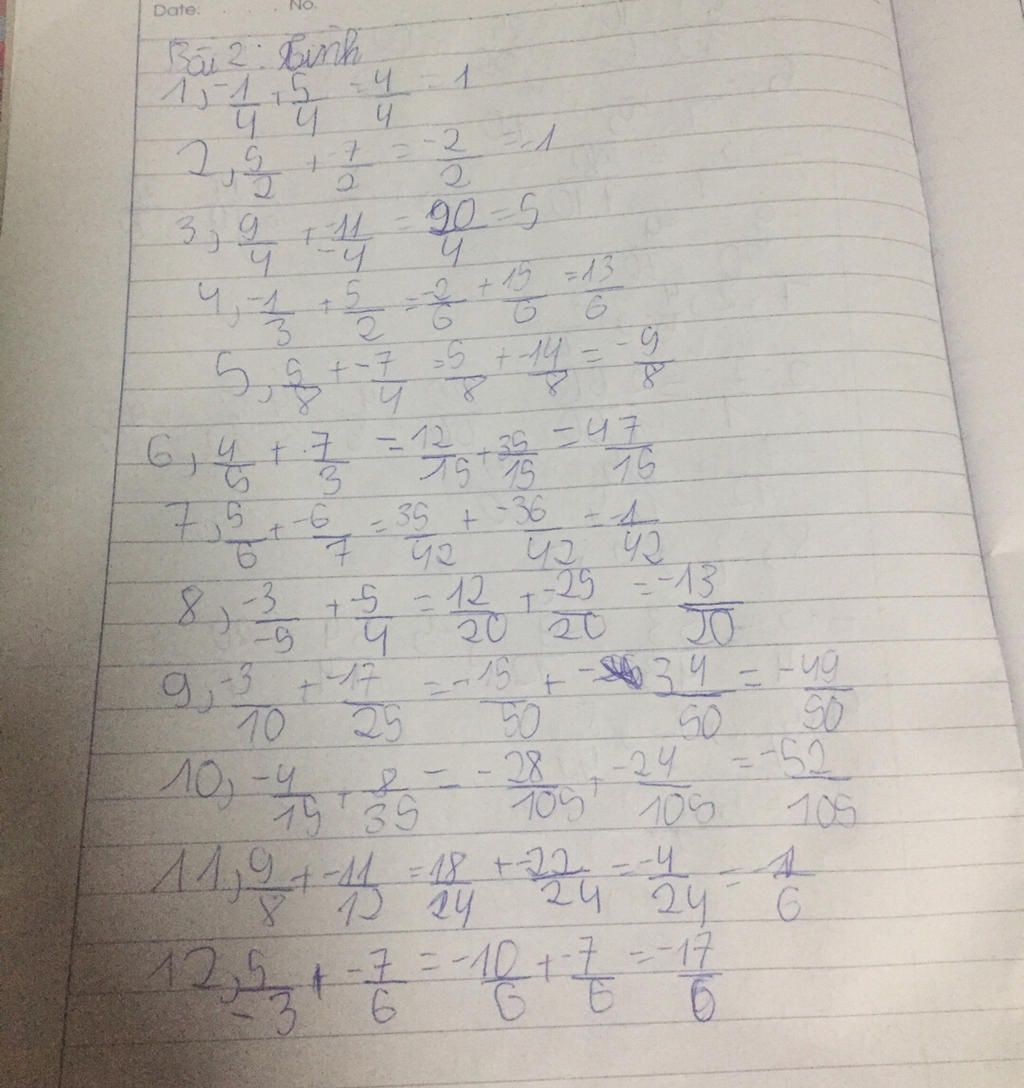 Date: No.
Bài 2: Tính
1, -1/4 + 5/4 = 4/4 = 1
2, 5/2 + -7/2 = -2/2 = -1
3, 9/4 + -11/-4 = 20/4 = 5
4, -1/3 + 5/2 = -2/6 + 15/6 = 13/6
5, 5/8 + -7/4 = 5/8 + -14/8 = -9/8
6, 4/5 + 7/3 = 12/15 + 35/15 = 47/15
7, 5/6 + -6/7 = 35/42 + -36/42 = -1/42
8, -3/-5 + -5/4 = 12/20 + -25/20 = -13/20
9, -3/10 + -17/25 = -15/50 + -34/50 = -49/50
10, -4/15 + 8/35 = -28/105 + -24/105 = -52/105
11, 9/8 + -11/12 = 18/24 + -22/24 = -4/24 = -1/6
12, 5/-3 + -7/6 = -10/6 + -7/6 = -17/6